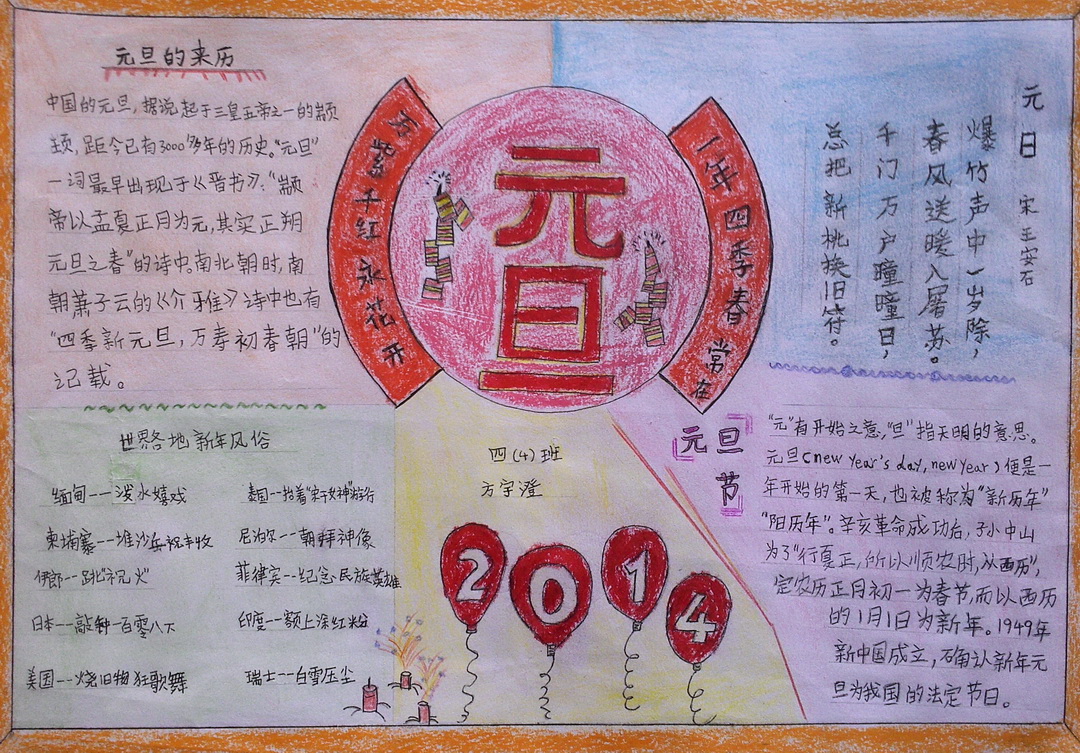 元旦的来历
中国的元旦，据说起于三皇五帝之一的颛
顼，距今已有3000多年的历史。"元旦"
一词最早出现于《晋书》："颛
帝以孟夏正月为元，其实正朔
元旦之春"的诗中。南北朝时，南
朝萧子云的《介雅》诗中也有
"四季新元旦，万寿初春朝"的
记载。
万紫千红永花开
元旦
一年四季春常在
元日
宋 王安石
爆竹声中一岁除，
春风送暖入屠苏。
千门万户曈曈日，
总把新桃换旧符。
世界各地新年风俗
缅甸--泼水嬉戏
泰国--抬着"宋干女神"游行
柬埔寨--堆沙丘祝丰收
尼泊尔--朝拜神像
伊郎--跳"祝火"
菲律宾--纪念民族英雄
日本--敲钟一百零八下
印度--额上涂红粉
美国--烧旧物狂歌舞
瑞士--白雪压尘
四(4)班
方宇澄
2014
元旦
节
"元"有开始之意，"旦"指天明的意思。
元旦(new year's day, new year)便是一
年开始的第一天，也被称为"新历年"
"阳历年"。辛亥革命成功后，孙中山
为了"行夏正，所以顺农时，从西历"，
定农历正月初一为春节，而以西历
的1月1日为新年。1949年
新中国成立，确认新年元
旦为我国的法定节日。